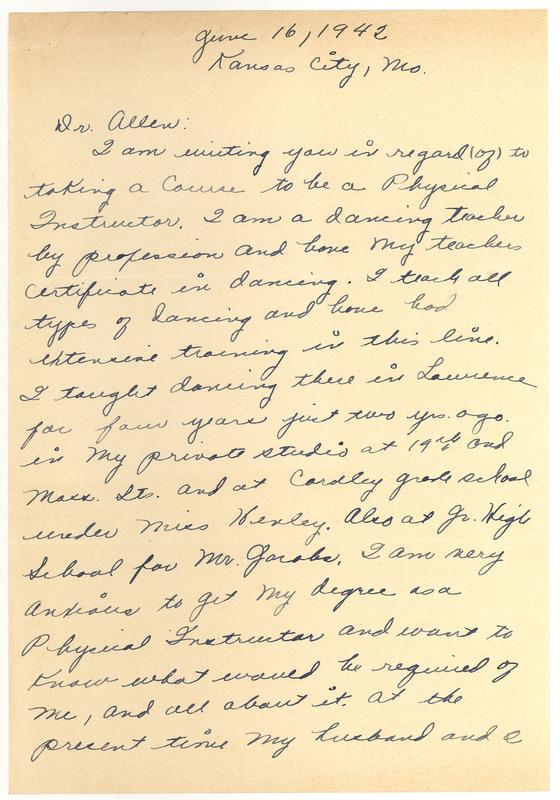 June 16, 1942
Kansas City, Mo.
Dr. Allen:
I am writing you in regard (of) to
taking a Course to be a Physical
Instructor. I am a dancing teacher
by profession and have my teachers
Certificate in dancing. I teach all
types of dancing and have had
extensive training in this line.
I taught dancing there in Lawrence
for four years just two yrs. ago.
in my private studio at 19th and
Mass. Sts. and at Cordley grade school
under Miss Henley. Also at Jr. High
School for Mr. Jacobs. I am very
anxious to get my degree as a
Physical Instructor and want to
know what would be required of
me, and all about it. At the
present time my husband and I